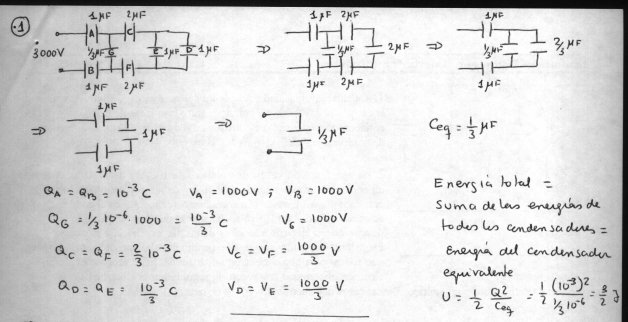 .1
1μF 2μF
A C
3000V 1/3μF G E 1μF D 1μF
B F
1μF 2μF
⇒
1μF 2μF
1/3μF 2μF
1μF 2μF
⇒
1μF
1/3μF 2/3μF
1μF
⇒
1μF
1μF
1μF
⇒
1/3μF
Ceq = 1/3 μF
QA = QB = 10^-3 C VA = 1000V ; VB = 1000V
QG = 1/3 10^-6 · 1000 = 10^-3/3 C VG = 1000V
QC = QF = 2/3 10^-3 C VC = VF = 1000/3 V
QD = QE = 10^-3/3 C VD = VE = 1000/3 V
Energía total =
Suma de las energías de
todos los condensadores =
Energía del condensador
equivalente
U = 1/2 Q^2/Ceq = 1/2 (10^-3)^2/(1/3 10^-6) = 3/2 J